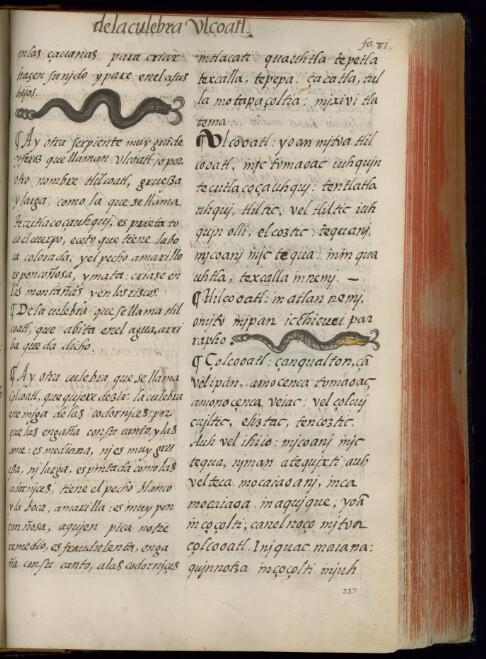 de la culebra Vlcoatl.
fo. 81.
en las çauanas. para criar
hazen su nido y pare en el a sus
hijos.
¶ Ay otra serpiente muy grãde
y feroz que llaman Vlcoatl, o por
otro nombre tlilcoatl, gruessa
y larga, como la que se llama
tecutlacoçauhquj, es prieta to
do el cuerpo, eceto que tiene la bo
ca colorada, y el pecho amarillo
es ponçoñosa, y mata: criase en
las montañas y en los riscos.
¶ De la culebra que se llama tlil
coatl, que abita en el agua, arri
ba queda dicho.
¶ Ay otra culebra que se llama
çolcoatl, que quiere dezir: la culebra
enemiga de las codornices: por
que las engaña con su canto, y las
come: es mediana, nj es muy grue
ssa, nj larga, es pintada como las
codornices, tiene el pecho blanco
y la boca, amarilla: es muy pon
çoñosa, a quien pica no tiene
remedio, es fraudolenta, enga
ña con su canto, a las codornices
intlacatl quauhtla tepetla
texcalla, tepepa: çacatla, tul
la motapaçoltia: mixivi tla
tema.
¶ Vlcooatl: yoan mjtoa tlil
cooatl, mjc tomaoac iuhqujn
tecutlacoçauhquj: tentlatla
uhquj, tliltic, vel tliltic iuh
qujn olli, elcoztic: tequanj,
mjcoanj mjc tequa: njn qua
uhtla, texcalla nnemj.
¶ Tlilcooatl: in atlan nemj,
onjtv injpan ic chicuei par
rapho
¶ Çolcooatl: çan qualton, çã
vel ipan, amo cenca tomaoac
amono cenca veiac: vel çolcuj
cujltic, eliztac, tencoztic.
Auh vel ihiio: mjcoanj mjc
tequa, njman atequixti auh
vel teca mocaiaoanj, inca
mocaiaoa in aqujque, yoã
in çoçolti, ca nel noço mjtoa
çolcooatl. Injquac maiana:
qujnnotza in çoçolti injuh
227